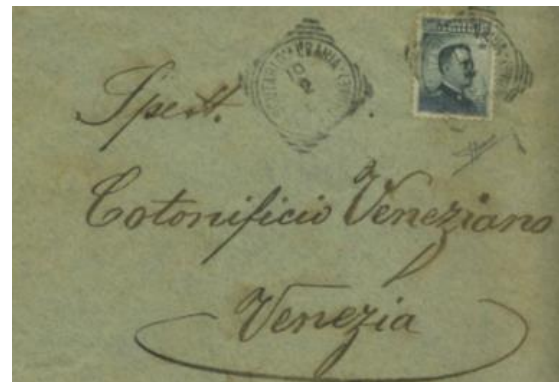 Spett.
Cotonificio Veneziano
Venezia